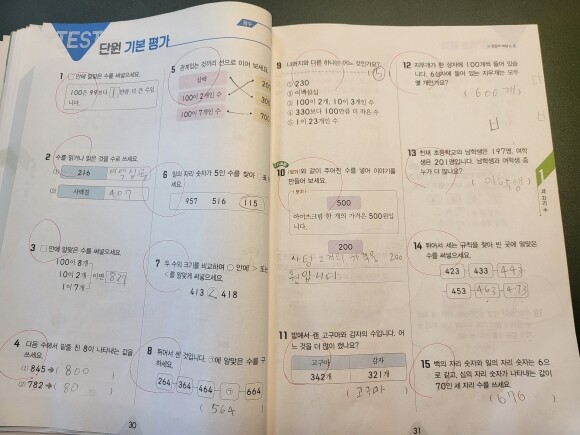 TEST 단원 기본 평가
1 □ 안에 알맞은 수를 써넣으세요.
100은 99보다 1만큼 더 큰 수입
니다.
2 수를 읽거나 읽은 것을 수로 쓰세요.
(1) 216
(2) 사백칠 407
3 □ 안에 알맞은 수를 써넣으세요.
100이 8개
10이 2개 이면 827
1이 7개
4 다음 수에서 밑줄 친 8이 나타내는 값을
쓰세요.
(1) 845 → ( 800 )
(2) 782 → ( 80 )
5 관계있는 것끼리 선으로 이어 보세요.
삼백
100이 2개인 수
100이 7개인 수
6 일의 자리 숫자가 5인 수를 찾아
957 516 115
7 두 수의 크기를 비교하여 ○ 안에 > 또는
<를 알맞게 써넣으세요.
413 < 418
8 뛰어서 센 것입니다. ㉠에 알맞은 수를 구
하세요.
264 364 464 ㉠ 664
( 564
30
9 나머지와 다른 하나는 어느 것인가요?
( ⑤ )
① 230
② 이백삼십
③ 100이 2개, 10이 3개인 수
④ 330보다 100만큼 더 작은 수
⑤ 1이 23개인 수
10 보기와 같이 주어진 수를 넣어 이야기를
만들어 보세요.
500
아이스크림 한 개의 가격은 500원입
니다.
200
사탕 한개의 가격은 200
원입니다
11 밭에서 캔 고구마와 감자의 수입니다. 어
느 것을 더 많이 캤나요?
고구마 감자
342개 321개
( 고구마 )
12 지우개가 한 상자에 100개씩 들어 있습
니다. 6상자에 들어 있는 지우개는 모두
몇 개인가요?
( 600개 )
13 천재 초등학교의 남학생은 197명, 여학
생은 201명입니다. 남학생과 여학생 중
누가 더 많나요?
( 여학생 )
14 뛰어서 세는 규칙을 찾아 빈 곳에 알맞은
수를 써넣으세요.
423 433 443
453 463 473
15 백의 자리 숫자와 일의 자리 숫자는 6으
로 같고, 십의 자리 숫자가 나타내는 값이
70인 세 자리 수를 쓰세요.
( 676 )
1
세 자리 수
31